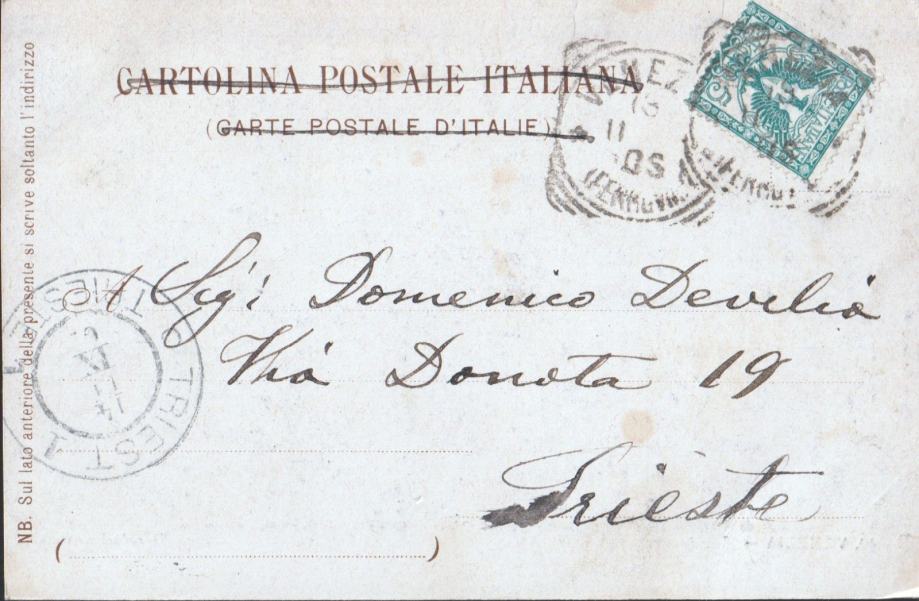 CARTOLINA POSTALE ITALIANA
(CARTE POSTALE D'ITALIE)
VENEZ
11
(FERROVIA
A Sigi Domenico Devilia
Via Donota 19
Trieste
TRIEST 1 TRIESTE
NB. Sul lato anteriore della presente si scrive soltanto l'indirizzo